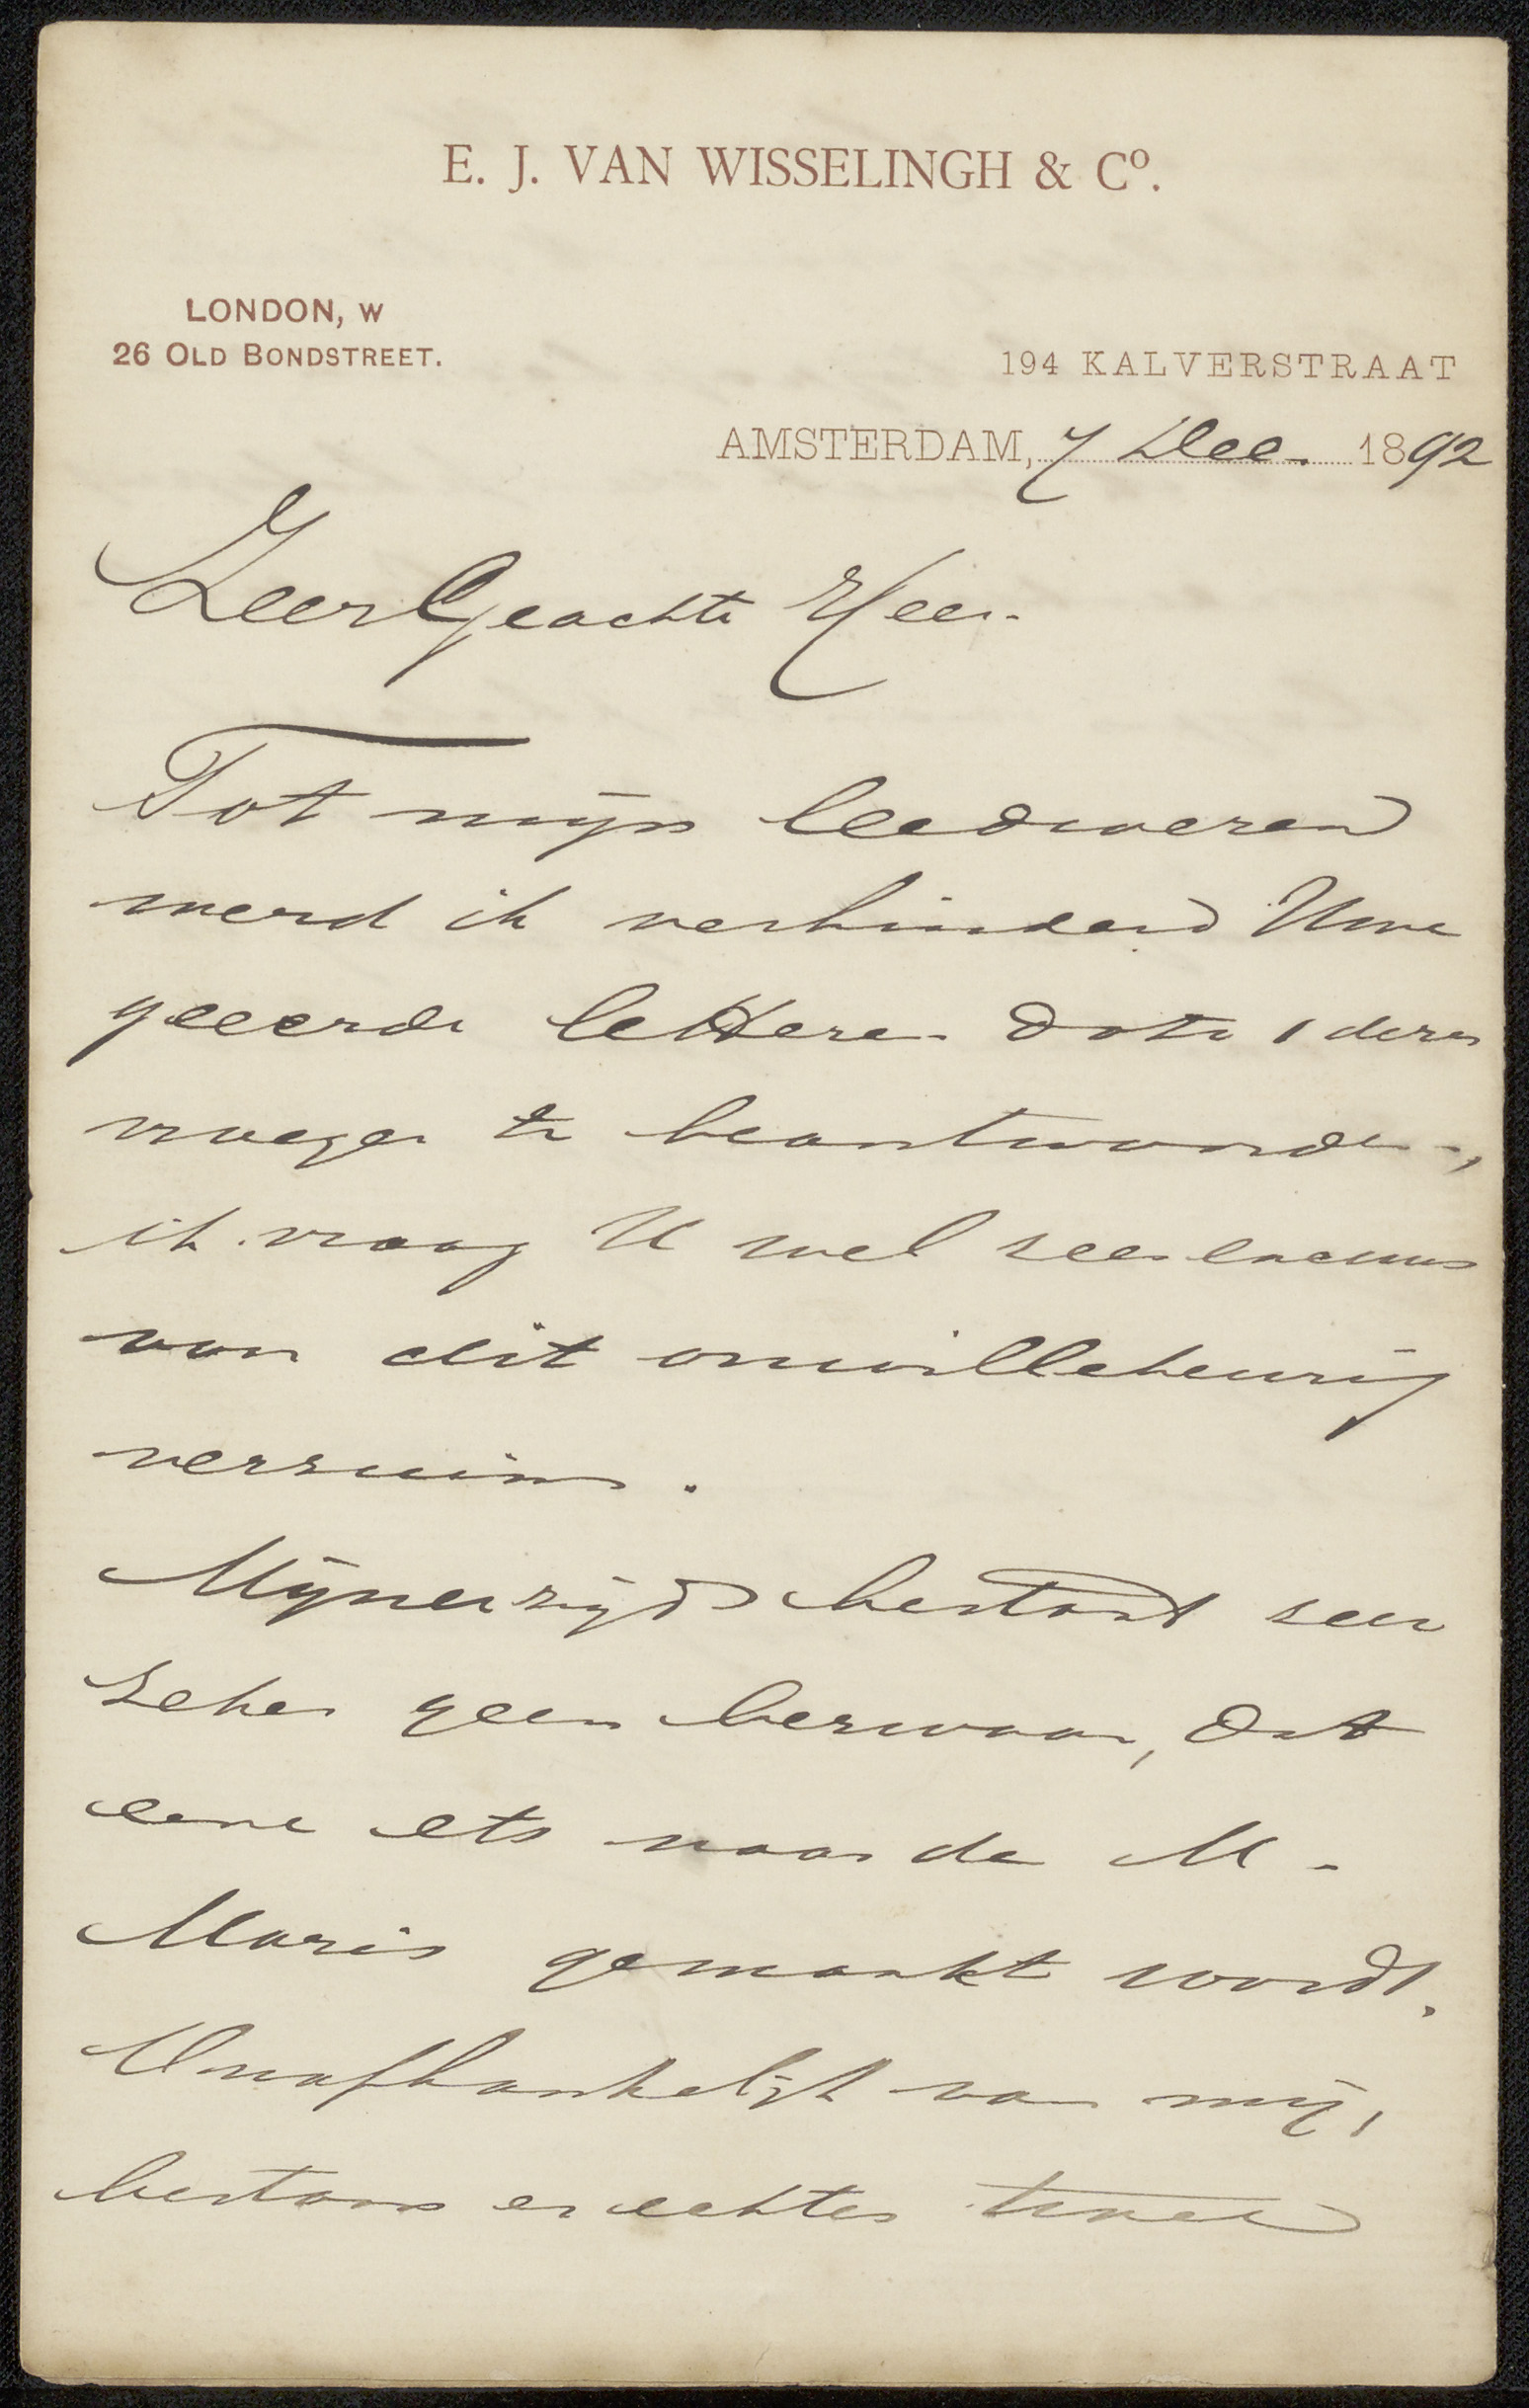 E. J. VAN WISSELINGH & Cº.
LONDON, W
26 OLD BONDSTREET.
194 KALVERSTRAAT
AMSTERDAM, 7 Dec. 1892
Zeer Geachte Heer.
Tot mijn leedwezen
werd ik verhinderd Uwe
geëerde letteren dato 1 dezer
vroeger te beantwoorden,
ik vraag U wel zeer excuus
van dit onwillekeurig
verzuim.
Mijnerzijds bestaat zeer
zeker geen bezwaar, dat
eene ets naar de M.
Maris gemaakt wordt.
Onafhankelijk van mij,
bestaan er echter twee